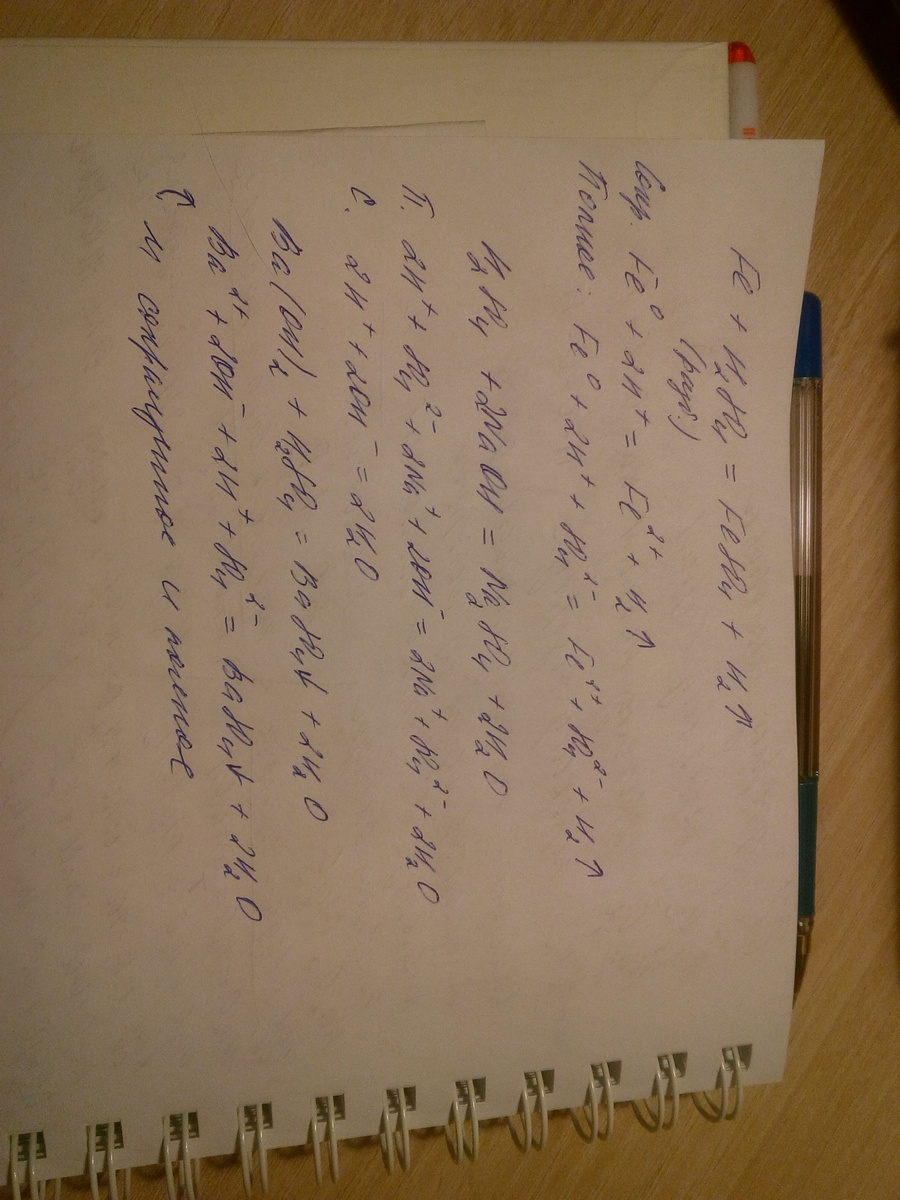 Fe + H₂SO₄ = FeSO₄ + H₂↑
(разб.)
Сокр. Fe⁰ + 2H⁺ = Fe²⁺ + H₂↑
Полное: Fe⁰ + 2H⁺ + SO₄²⁻ = Fe²⁺ + SO₄²⁻ + H₂↑
H₂SO₄ + 2NaOH = Na₂SO₄ + 2H₂O
П. 2H⁺ + SO₄²⁻ + 2Na⁺ + 2OH⁻ = 2Na⁺ + SO₄²⁻ + 2H₂O
С. 2H⁺ + 2OH⁻ = 2H₂O
Ba(OH)₂ + H₂SO₄ = BaSO₄↓ + 2H₂O
Ba²⁺ + 2OH⁻ + 2H⁺ + SO₄²⁻ = BaSO₄↓ + 2H₂O
↑ и сокращенное и полное